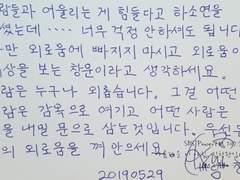 람들과 어울리는 게 힘들다고 하소연을
셨는데 ···· 너무 걱정 안하셔도 됩니다
만 외로움에 빠지지 마시고 외로움이
상을 보는 창문이라고 생각하세요.
람은 누구나 외롭습니다. 그걸 어떤
람은 감옥으로 여기고 어떤 사람은
을 내밀 문으로 삼는것입니다. 우선
의 외로움을 껴안으세요.
20190529